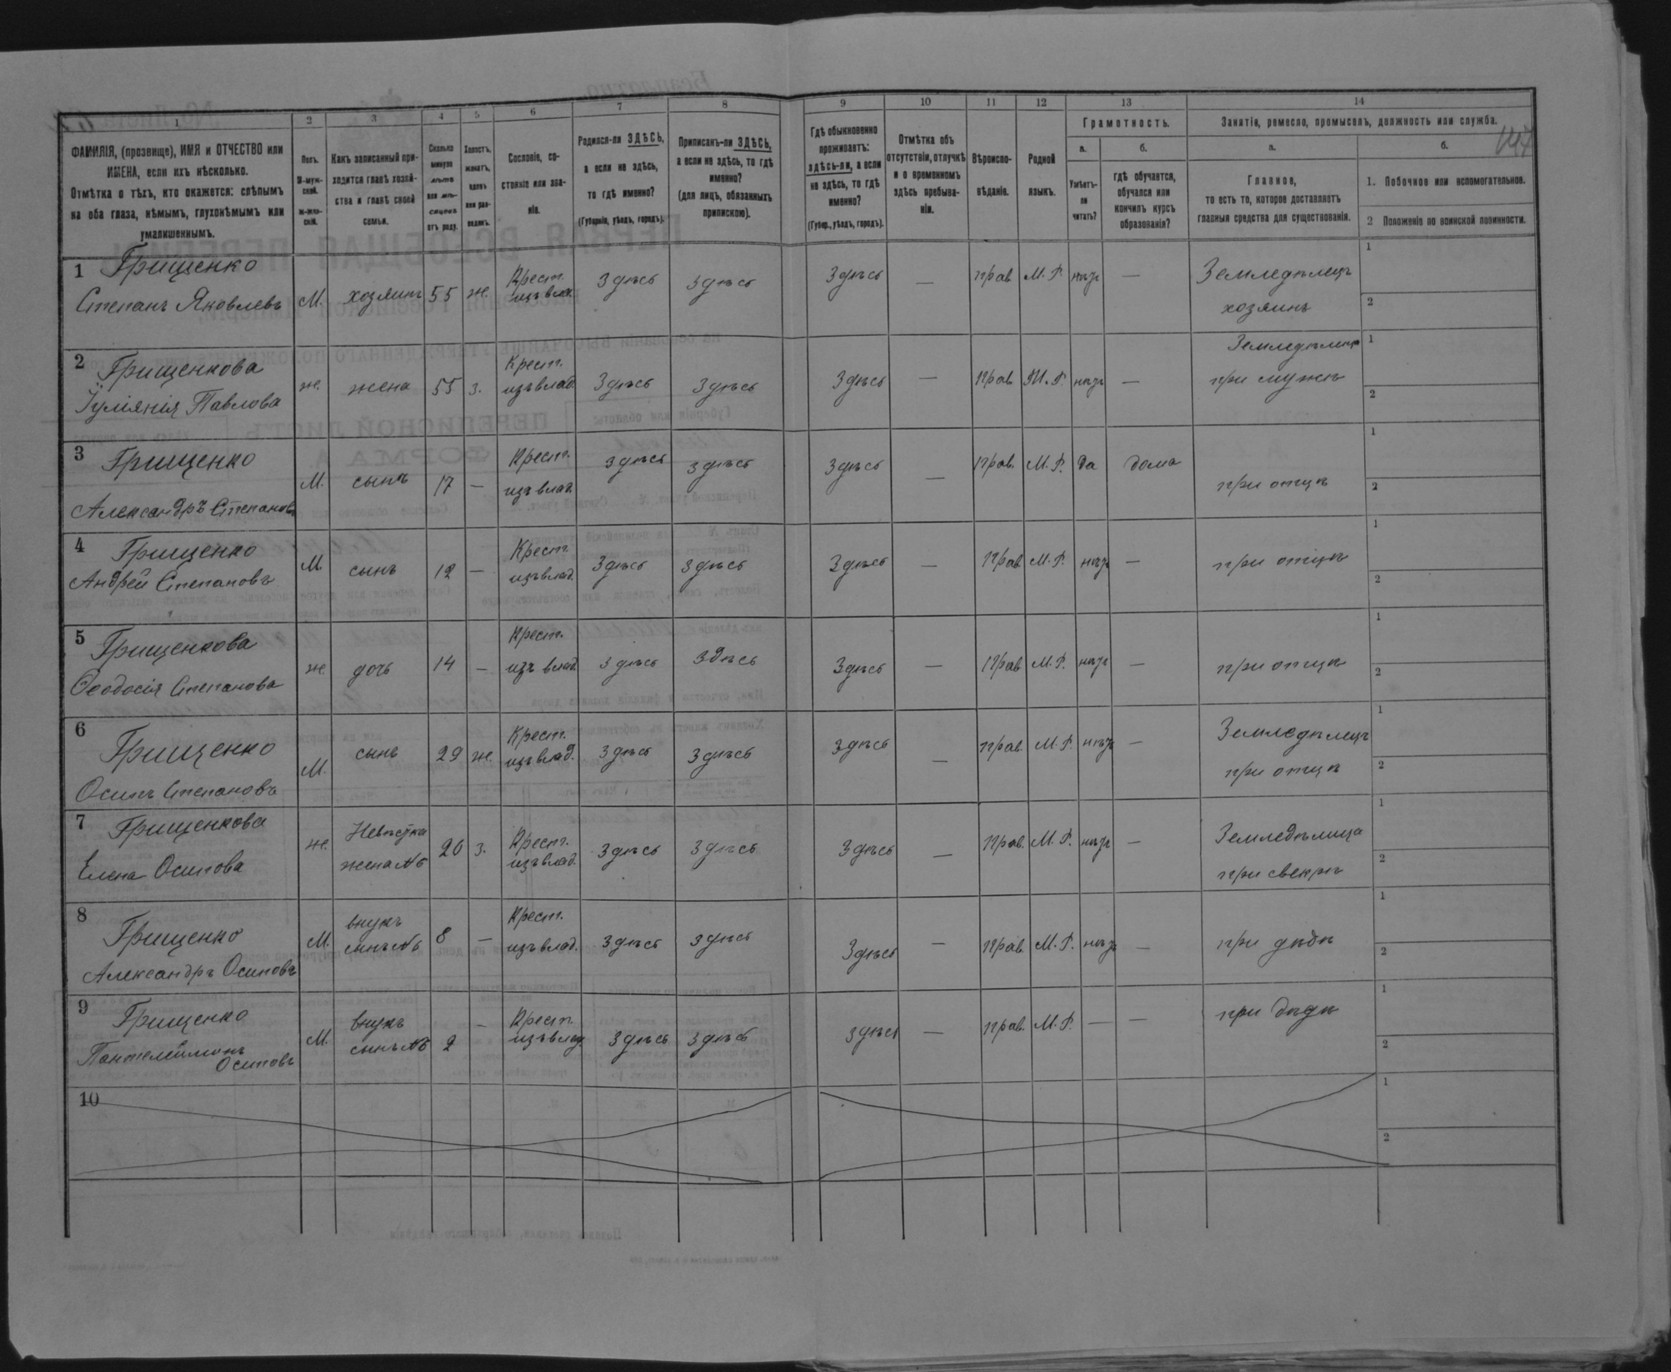 1 2 3 4 5 6 7 8 9 10 11 12 13 14
ФАМИЛІЯ, (прозвище), ИМЯ и ОТЧЕСТВО или
ИМЕНА, если ихъ нѣсколько.
Отмѣтка о тѣхъ, кто окажется: слѣпымъ
на оба глаза, нѣмымъ, глухонѣмымъ или
умалишеннымъ.
Полъ.
М-муж-
ской.
ж-жен-
скій.
Какъ записанный при-
ходится главѣ хозяй-
ства и главѣ своей
семьи.
Сколько
минуло
лѣтъ
или мѣ-
сяцевъ
отъ роду.
Холостъ,
женатъ,
вдовъ
или раз-
веденъ.
Сословіе, со-
стояніе или зва-
ніе.
Родился-ли ЗДѢСЬ,
а если не здѣсь,
то гдѣ именно?
(Губернія, уѣздъ, городъ).
Приписанъ-ли ЗДѢСЬ,
а если не здѣсь, то гдѣ
именно?
(для лицъ, обязанныхъ
припискою).
Гдѣ обыкновенно
проживаетъ:
здѣсь-ли, а если
не здѣсь, то гдѣ
именно?
(Губер., уѣздъ, городъ).
Отмѣтка объ
отсутствіи, отлучкѣ
и о временномъ
здѣсь пребыва-
ніи.
Вѣроиспо-
вѣданіе.
Родной
языкъ.
Грамотность.
а.
Умѣетъ-
ли
читать?
б.
гдѣ обучается,
обучался или
кончилъ курсъ
образованія?
Занятіе, ремесло, промыселъ, должность или служба.
147
а.
Главное,
то есть то, которое доставляетъ
главныя средства для существованія.
б.
1. Побочное или вспомогательное.
2 Положеніе по воинской повинности.
1 Грищенко
Степанъ Яковлевъ М. хозяинъ 55 ж. Крест. изъ влад. Здѣсь здѣсь Здѣсь — прав М. Р. нѣтъ — Земледѣлецъ
хозяинъ
1
2
2 Грищенкова
Іуліянія Павлова ж. жена 55 з. Крест. изъ влад. Здѣсь Здѣсь Здѣсь — прав. М. Р. нѣтъ — Земледѣлица
при мужѣ
1
2
3 Грищенко
Александръ Степановъ М. сынъ 17 — Крест. изъ влад. здѣсь здѣсь Здѣсь — прав. М. Р. да дома при отцѣ
1
2
4 Грищенко
Андрей Степановъ М. сынъ 12 — Крест. изъ влад. Здѣсь здѣсь Здѣсь — прав. М. Р. нѣтъ — при отцѣ
1
2
5 Грищенкова
Ѳеодосія Степанова ж. дочь 14 — Крест. изъ влад. здѣсь здѣсь Здѣсь — прав. М. Р. нѣтъ — при отцѣ
1
2
6 Грищенко
Осипъ Степановъ М. сынъ 29 ж. Крест. изъ влад. здѣсь здѣсь здѣсь — прав. М. Р. нѣтъ — Земледѣлецъ
при отцѣ
1
2
7 Грищенкова
Елена Осипова ж. Невѣстка
жена №6 з. Крест. изъ влад. здѣсь здѣсь здѣсь — прав. М. Р. нѣтъ — Земледѣлица
при свекрѣ
1
2
8 Грищенко
Александръ Осиповъ М. внукъ
сынъ №6 8 — Крест. изъ влад. здѣсь здѣсь Здѣсь — прав. М. Р. нѣтъ — при дѣдѣ
1
2
9 Грищенко
Пантелеймонъ
Осиповъ М. внукъ
сынъ №6 2 — Крест. изъ влад. здѣсь здѣсь здѣсь — прав. М. Р. — — при дѣдѣ
1
2
10
1
2